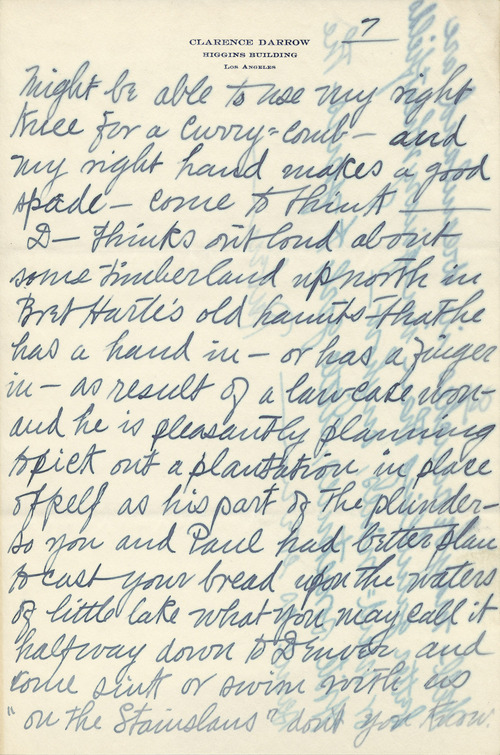 CLARENCE DARROW
HIGGINS BUILDING
LOS ANGELES
7
Might be able to use my right
knee for a curry=comb - and
my right hand makes a good
spade - come to think
D- thinks out loud about
some timberland up north in
Bret Harte's old haunts - that he
has a hand in - or has a finger
in - as result of a law case won -
and he is pleasantly planning
to pick out a plantation in place
of pelf as his part of the plunder -
so you and Paul had better plan
to cast your bread upon the waters
of little lake what you may call it
halfway down to Denver and
come sink or swim with us
"on the Stanislaus" don't you know.